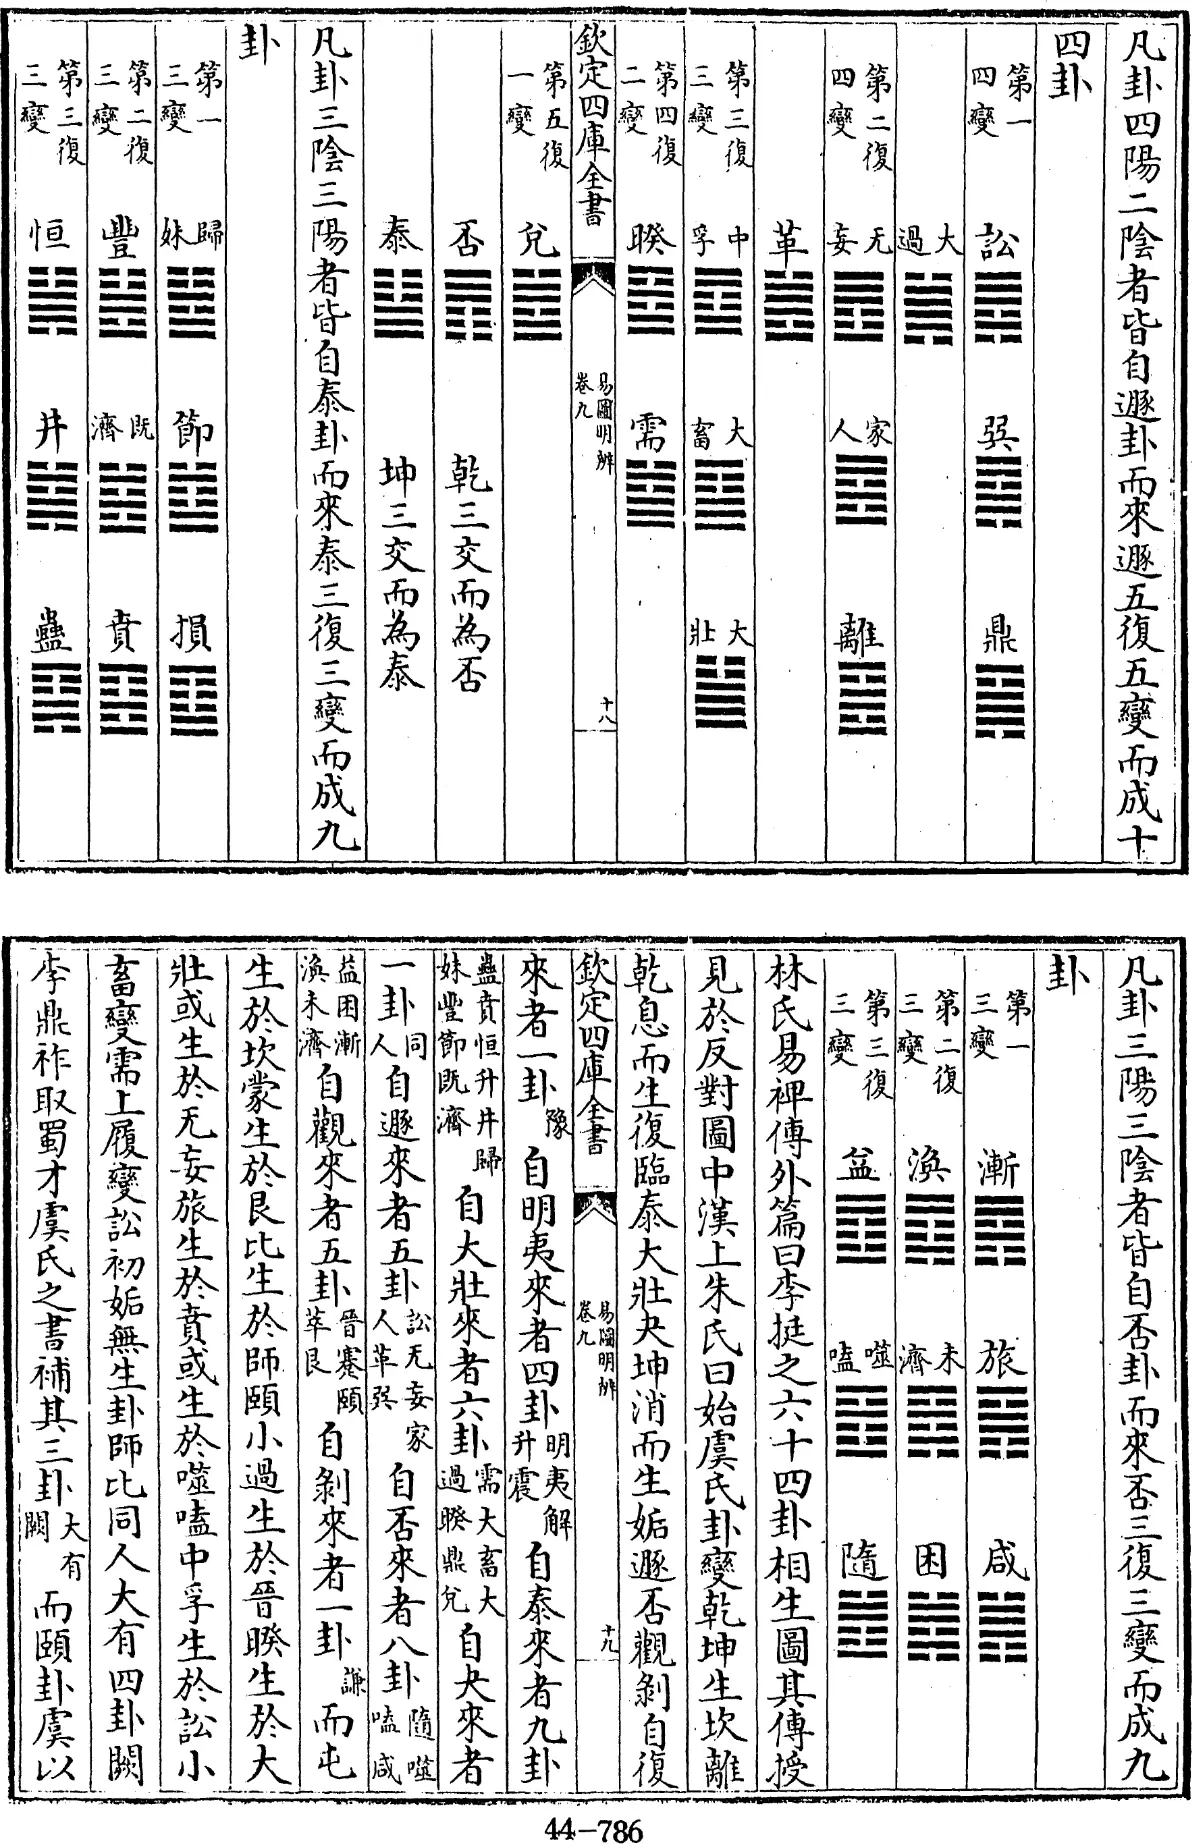 凡卦四陽二陰者皆自遯卦而來遯五復五變而成十
四卦
第一四變 訟 巽 鼎
大過
第二復四變 无妄 家人 離
革
第三復三變 中孚 大畜 大壯
第四復二變 睽 需
欽定四庫全書 易圖明辨 卷九 十八
第五復一變 兌
否 乾三交而為否
泰 坤三交而為泰
凡卦三陰三陽者皆自泰卦而來泰三復三變而成九
卦
第一三變 歸妹 節 損
第二復三變 豐 既濟 賁
第三復三變 恒 井 蠱
凡卦三陽三陰者皆自否卦而來否三復三變而成九
卦
第一三變 漸 旅 咸
第二復三變 渙 未濟 困
第三復三變 益 噬嗑 隨
林氏易裨傳外篇曰李挺之六十四卦相生圖其傳授
見於反對圖中漢上朱氏曰始虞氏卦變乾坤生坎離
乾息而生復臨泰大壯夬坤消而生姤遯否觀剝自復
欽定四庫全書 易圖明辨 卷九 十九
來者一卦豫自明夷來者四卦明夷解升震自泰來者九卦
蠱賁恒升井歸妹豐節既濟自大壯來者六卦需大畜大過睽鼎兌自夬來者
一卦同人自遯來者五卦訟无妄家人革巽自否來者八卦隨噬嗑咸
益困漸渙未濟自觀來者五卦晉蹇頤萃艮自剝來者一卦謙而屯
生於坎蒙生於艮比生於師頤小過生於晉睽生於大
壯或生於无妄旅生於賁或生於噬嗑中孚生於訟小
畜變需上履變訟初姤無生卦師比同人大有四卦闕
李鼎祚取蜀才虞氏之書補其三卦大有闕而頤卦虞以
44-786